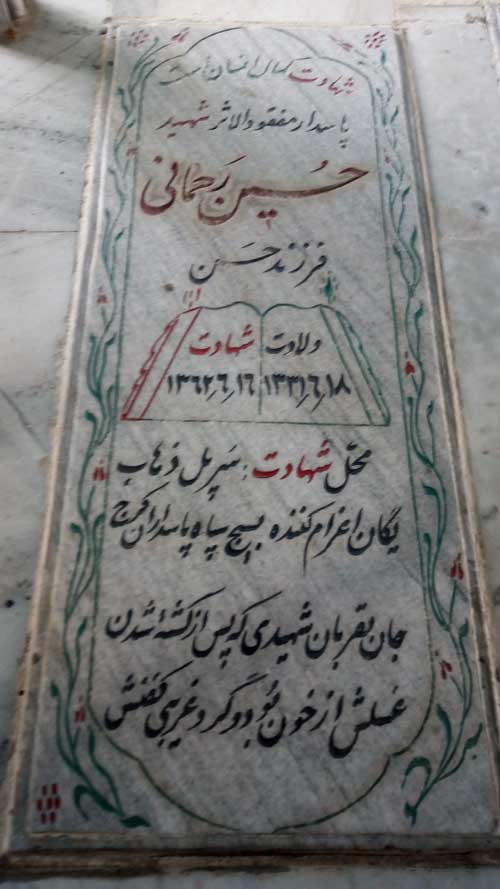 شهادت کمال انسان است
پاسدار مفقودالاثر شهید
حسین رحمانی
فرزند حسن
ولادت شهادت
۱۳۳۱,۶,۱۸ ۱۳۶۲,۶,۱۶
محل شهادت: سرپل ذهاب
یگان اعزام کننده بسیج سپاه پاسداران کرج
جان بقربان شهیدی که پس از کشته شدن
غسلش از خون بود و گرد غریبی کفنش